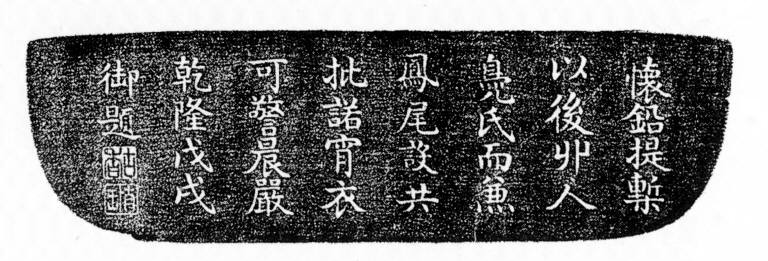 懷鉛提槧
以後丱人
鳧氏而兼
鳳尾設共
批諾宵衣
可警晨嚴
乾隆戊戌
御題